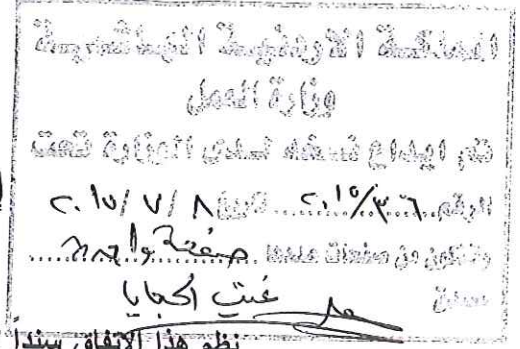 المملكة الأردنية الهاشمية
وزارة العمل
تم ايداع نسخة لدى الوزارة تحت
الرقم ٢٠١٥/٣٦ تاريخ ٢٠١٥/٧/٨
وتتكون من صفحات عددها صفحة واحدة
نظم هذا الاتفاق سنداً